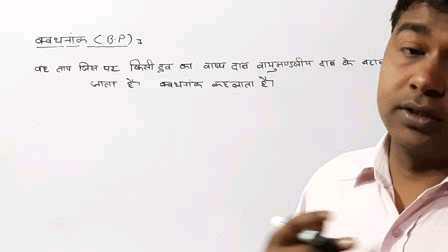 क्वथनांक (B.P) :
वह ताप जिस पर किसी द्रव का वाष्प दाब वायुमण्डलीय दाब के
जाता है। क्वथनांक कहलाता है।